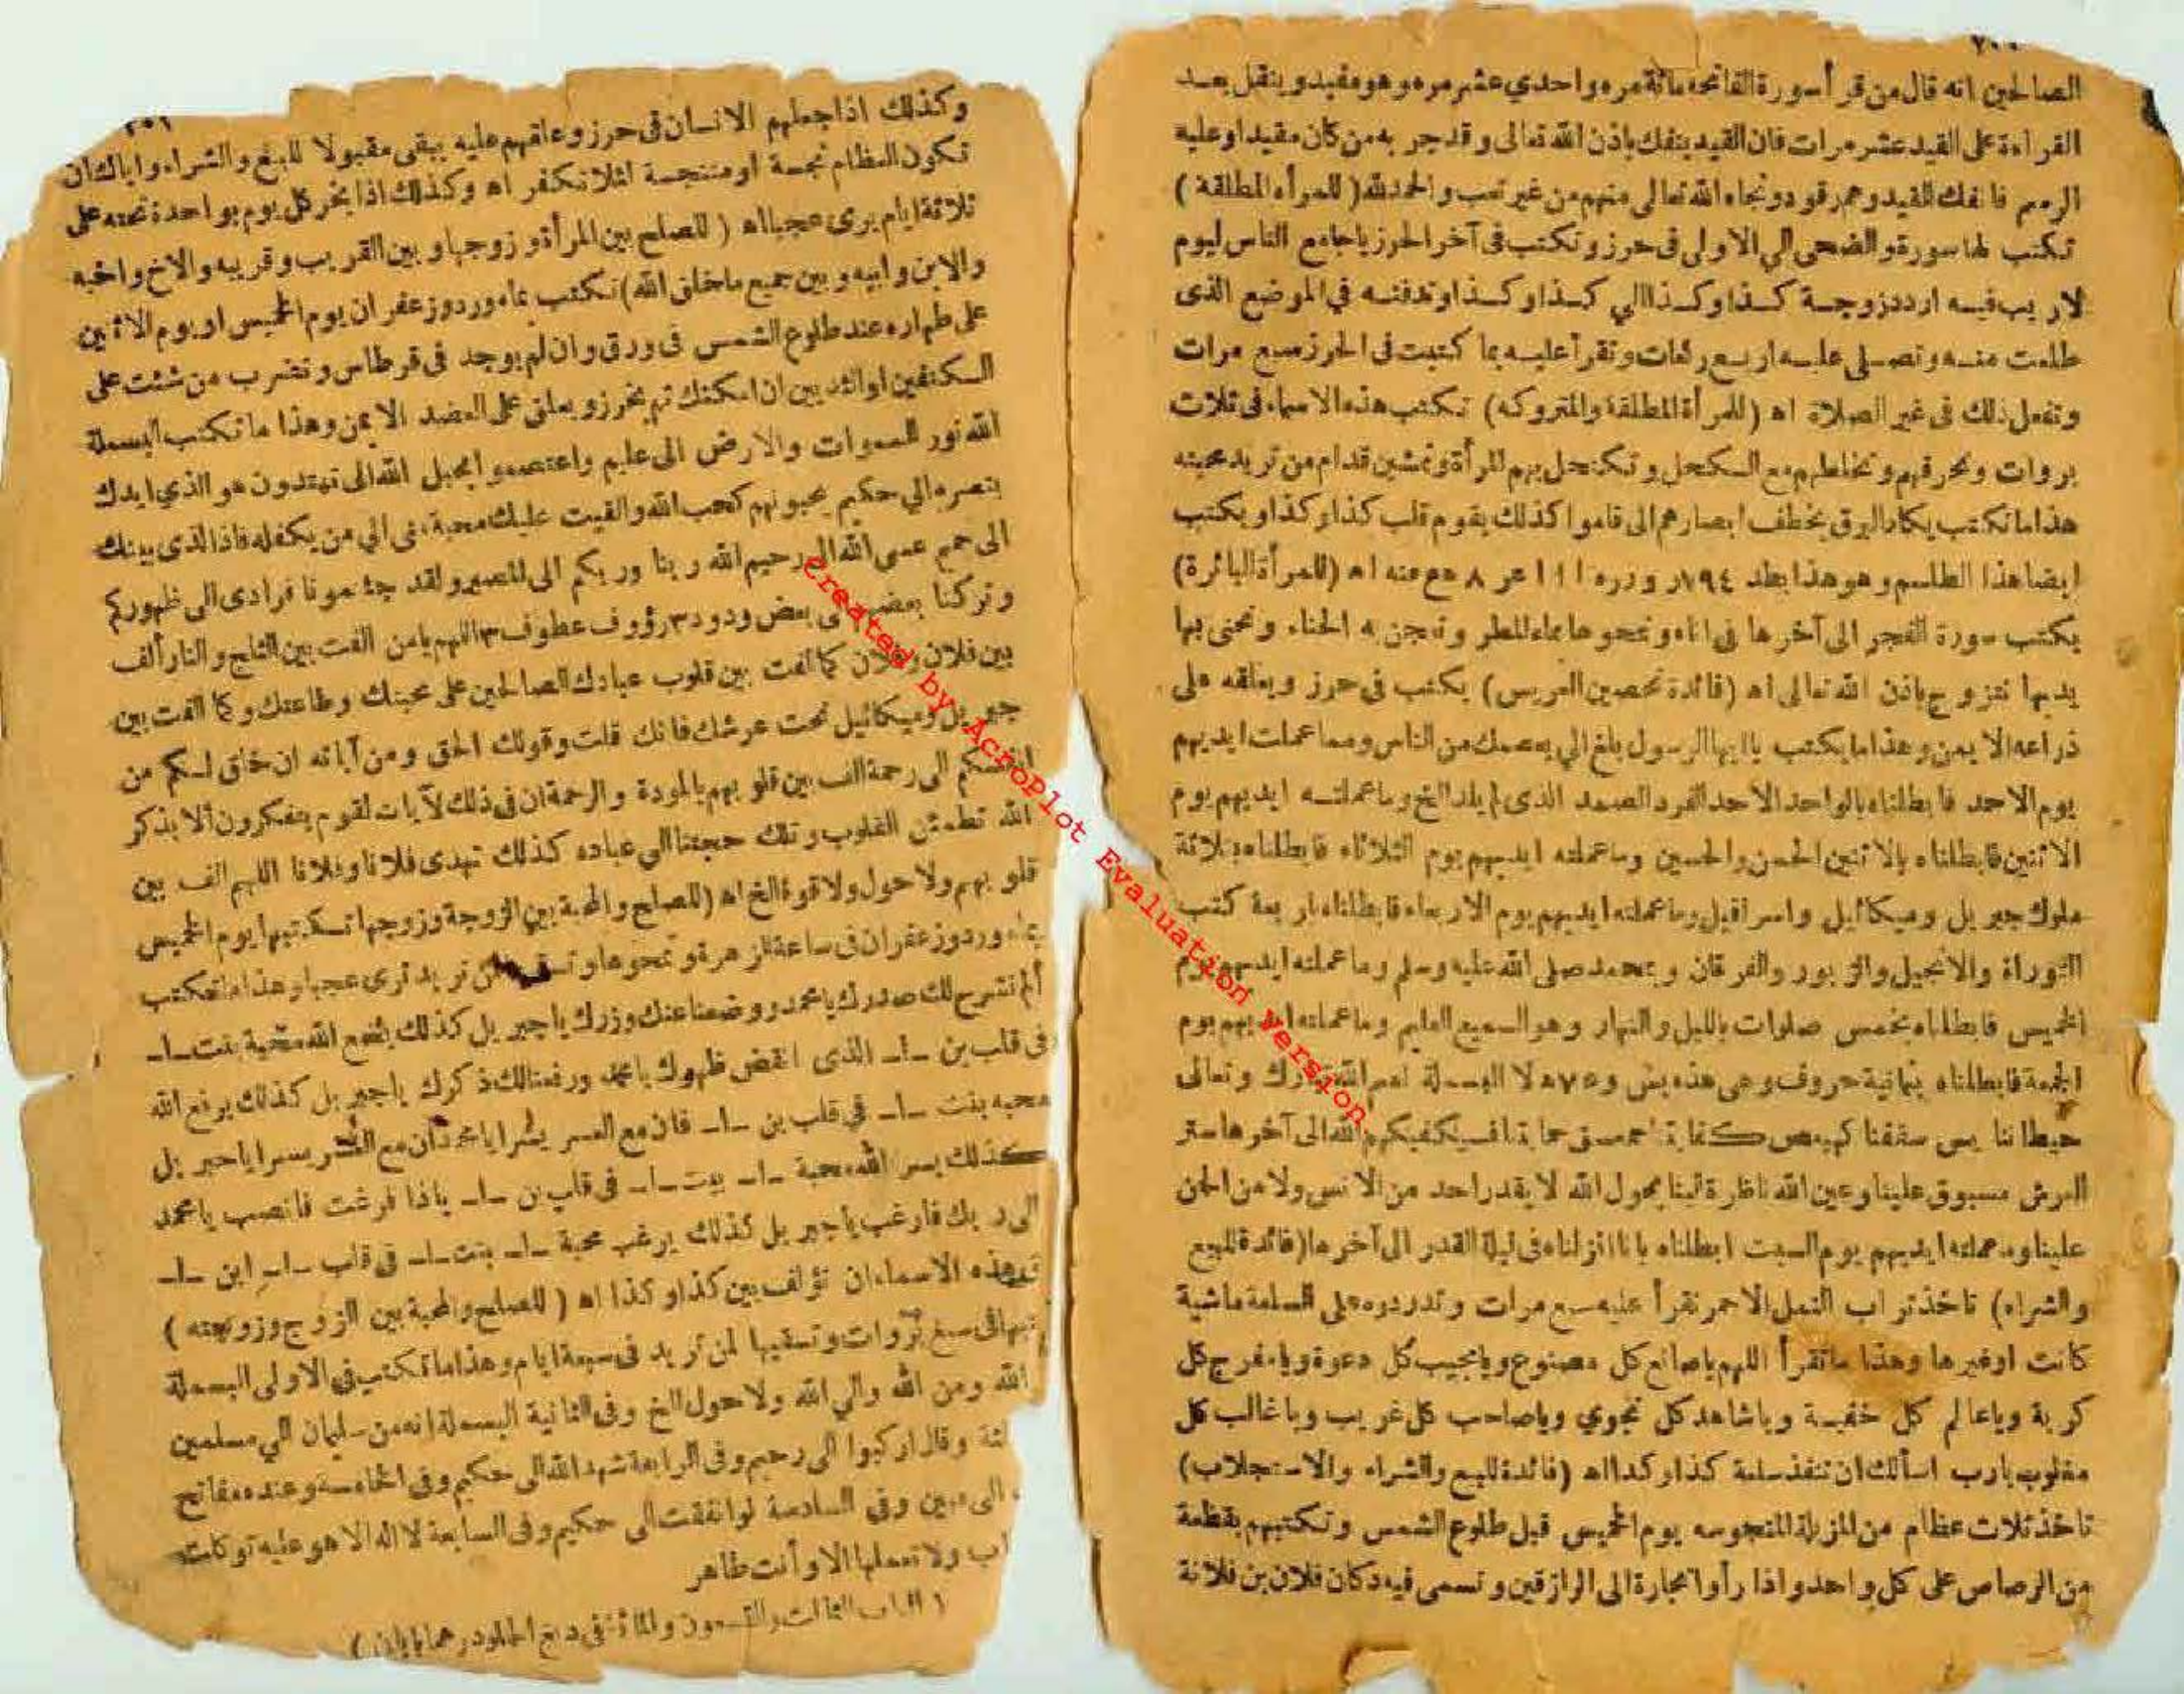 ٢٠٠
الصالحين انه قال من قرأ سورة الفاتحه مائة مره واحدي عشر مره وهو مقيد وينقل بعد
القراءة على القيد عشر مرات فان القيد ينفك باذن الله تعالى وقد جربه من كان مقيدا وعليه
الرسم فانفك القيد وهم رقود ونجاه الله تعالى منهم من غير تعب والحمد لله (للمرأه المطلقة)
تكتب لها سورة والضحى الي الاولى فى حرز وتكتب فى آخر الحرز ياجامع الناس ليوم
لاريب فيه اردد زوجة كذا وكذا الي كذا وكذا وتدفنه في الموضع الذى
طلعت منه وتصلى عليه اربع ركعات وتقرأ عليه بما كتبت فى الحرز سبع مرات
وتفعل ذلك فى غير الصلاة اه (للمرأة المطلقة والمتروكه) تكتب هذه الاسماء فى ثلاث
بروات وتحرقهم وتخلطهم مع السكحل وتكتحل بهم المرأة وتمشين قدام من تريد محبته
هذا ما تكتب يكاد البرق يخطف ابصارهم الى قاموا كذلك يقوم قلب كذا وكذا ويكتب
ايضا هذا الطلسم وهو هذا (للمرأة البائرة)
يكتب سورة الفجر الى آخرها فى اناء وتمحوها بماء المطر وتعجن به الحناء وتحنى بها
يديها تتزوج باذن الله تعالى اه (فائدة تحصين العريس) يكتب فى حرز ويعلقه على
ذراعه الايمن وهذا ما يكتب ياايها الرسول بلغ الي يعصمك من الناس ومما عملت ايديهم
يوم الاحد فابطلناه بالواحد الاحد الفرد الصمد الذى لم يلد الخ وما عملته ايديهم يوم
الاثنين فابطلناه بالاثنين الحسن والحسين وما عملته ايديهم يوم الثلاثاء فابطلناه بثلاثة
ملوك جبريل وميكائيل واسرافيل وما عملته ايديهم يوم الاربعاء فابطلناه باربعة كتب
التوراة والانجيل والزبور والفرقان وبمحمد صلى الله عليه وسلم وما عملته ايديهم يوم
الخميس فابطلناه بخمس صلوات بالليل والنهار وهو السميع العليم وما عملته ايديهم يوم
الجمعة فابطلناه بثمانية حروف وهى هذه البسملة تبارك وتعالى
حيطاننا يس سقفنا كهيعص كفايتنا حمعسق حمايتنا فسيكفيكهم الله الى آخرها ستر
العرش مسبوق علينا وعين الله ناظرة لينا بحول الله لا يقدر احد من الانس ولا من الجن
علينا وما عملته ايديهم يوم السبت ابطلناه بانا انزلناه فى ليلة القدر الى آخرها (فائدة للبيع
والشراء) تاخذ تراب النمل الاحمر تقرأ عليه سبع مرات وتدردره على السلعة ماشية
كانت او غيرها وهذا ما تقرأ اللهم ياصانع كل مصنوع ويامجيب كل دعوة ويامفرج كل
كربة وياعالم كل خفية وياشاهد كل نجوي وياصاحب كل غريب وياغالب كل
مغلوب يارب اسألك ان تنفذ سلعة كذا وكذا اه (فائدة للبيع والشراء والاستجلاب)
تاخذ ثلاث عظام من المزبلة المنجوسه يوم الخميس قبل طلوع الشمس وتكتبهم بقطعة
من الرصاص على كل واحد واذا رأوا تجارة الى الرازقين وتسمى فيه دكان فلان بن فلانة
٢٠١
وكذلك اذا جعلهم الانسان فى حرز وعلقهم عليه يبقى مقبولا للبيع والشراء واياك ان
تكون العظام نجسة او متنجسة لئلا تكفر اه وكذلك اذا بخر كل يوم بواحدة تحته على
ثلاثة ايام يرى عجبا اه (للصلح بين المرأة وزوجها وبين القريب وقريبه والاخ واخيه
والابن وابيه وبين جميع ماخلق الله) تكتب بماء ورد وزعفران يوم الخميس او يوم الاثنين
على طهاره عند طلوع الشمس فى ورق وان لم يوجد فى قرطاس وتضرب من شئت على
السكتفين او الثديين ان امكنك ثم تخرز ويعلق على العضد الايمن وهذا ما تكتب البسملة
الله نور السموات والارض الى عليم واعتصموا بحبل الله الى تهتدون هو الذي ايدك
بنصره الي حكيم يحبونهم كحب الله والقيت عليك محبة منى الي من يكفله فاذا الذى بينك
الى حميم عسى الله الى رحيم الله ربنا وربكم الى المصير ولقد جئتمونا فرادى الى ظهوركم
وتركنا بعضهم بعض ودود ٣ رؤوف عطوف ٣ اللهم يامن الفت بين الثلج والنار ألف
بين فلان وفلان كما الفت بين قلوب عبادك الصالحين على محبتك وطاعتك وكما الفت بين
جبريل وميكائيل تحت عرشك فانك قلت وقولك الحق ومن آياته ان خلق لكم من
انفسكم الى رحمة الف بين قلوبهم بالمودة والرحمة ان فى ذلك لآيات لقوم يتفكرون ألا بذكر
الله تطمئن القلوب وتلك حجتنا الي عباده كذلك تهدى فلانا وفلانا اللهم الف بين
قلوبهم ولا حول ولا قوة الخ اه (للصلح والمحبة بين الزوجة وزوجها تسكتبها يوم الخميس
بماء ورد وزعفران فى ساعة الزهرة وتمحوها وتسقيها لمن تريد ترى عجبا وهذا ما تكتب
ألم نشرح لك صدرك يامحمد ووضعنا عنك وزرك ياجبريل كذلك يضع الله محبة بنت ـاـ
فى قلب بن ـاـ الذى انقض ظهرك يامحمد ورفعنا لك ذكرك ياجبريل كذلك يرفع الله
محبه بنت ـاـ فى قلب بن ـاـ فان مع العسر يسرا يامحمد ان مع العسر يسرا ياجبريل
كذلك يسر الله محبة ـاـ بنت ـاـ فى قلب بن ـاـ ياذا فرغت فانصب يامحمد
الى ربك فارغب ياجبريل كذلك يرغب محبة ـاـ بنت ـاـ فى قلب ـاـ ابن ـاـ
هذه الاسماء ان تؤلف بين كذا وكذا اه (للصلح والمحبة بين الزوج وزوجته)
فى سبع بروات وتسقيها لمن تريد فى سبعة ايام وهذا ما تكتب في الاولى البسملة
الله ومن الله والي الله ولا حول الخ وفى الثانية البسملة انه من سليمان الي مسلمين
وقال اركبوا الى رحيم وفى الرابعة شهد الله الى حكيم وفى الخامسة وعنده مفاتح
الى مبين وفى السادسة لو انفقت الى حكيم وفى السابعة لا اله الا هو عليه توكلت
ولا تعملها الا وأنت طاهر
(الباب الثالث والتسعون والمائة فى دبغ الجلود وهما بابان)
created by AcroPlot Evaluation version